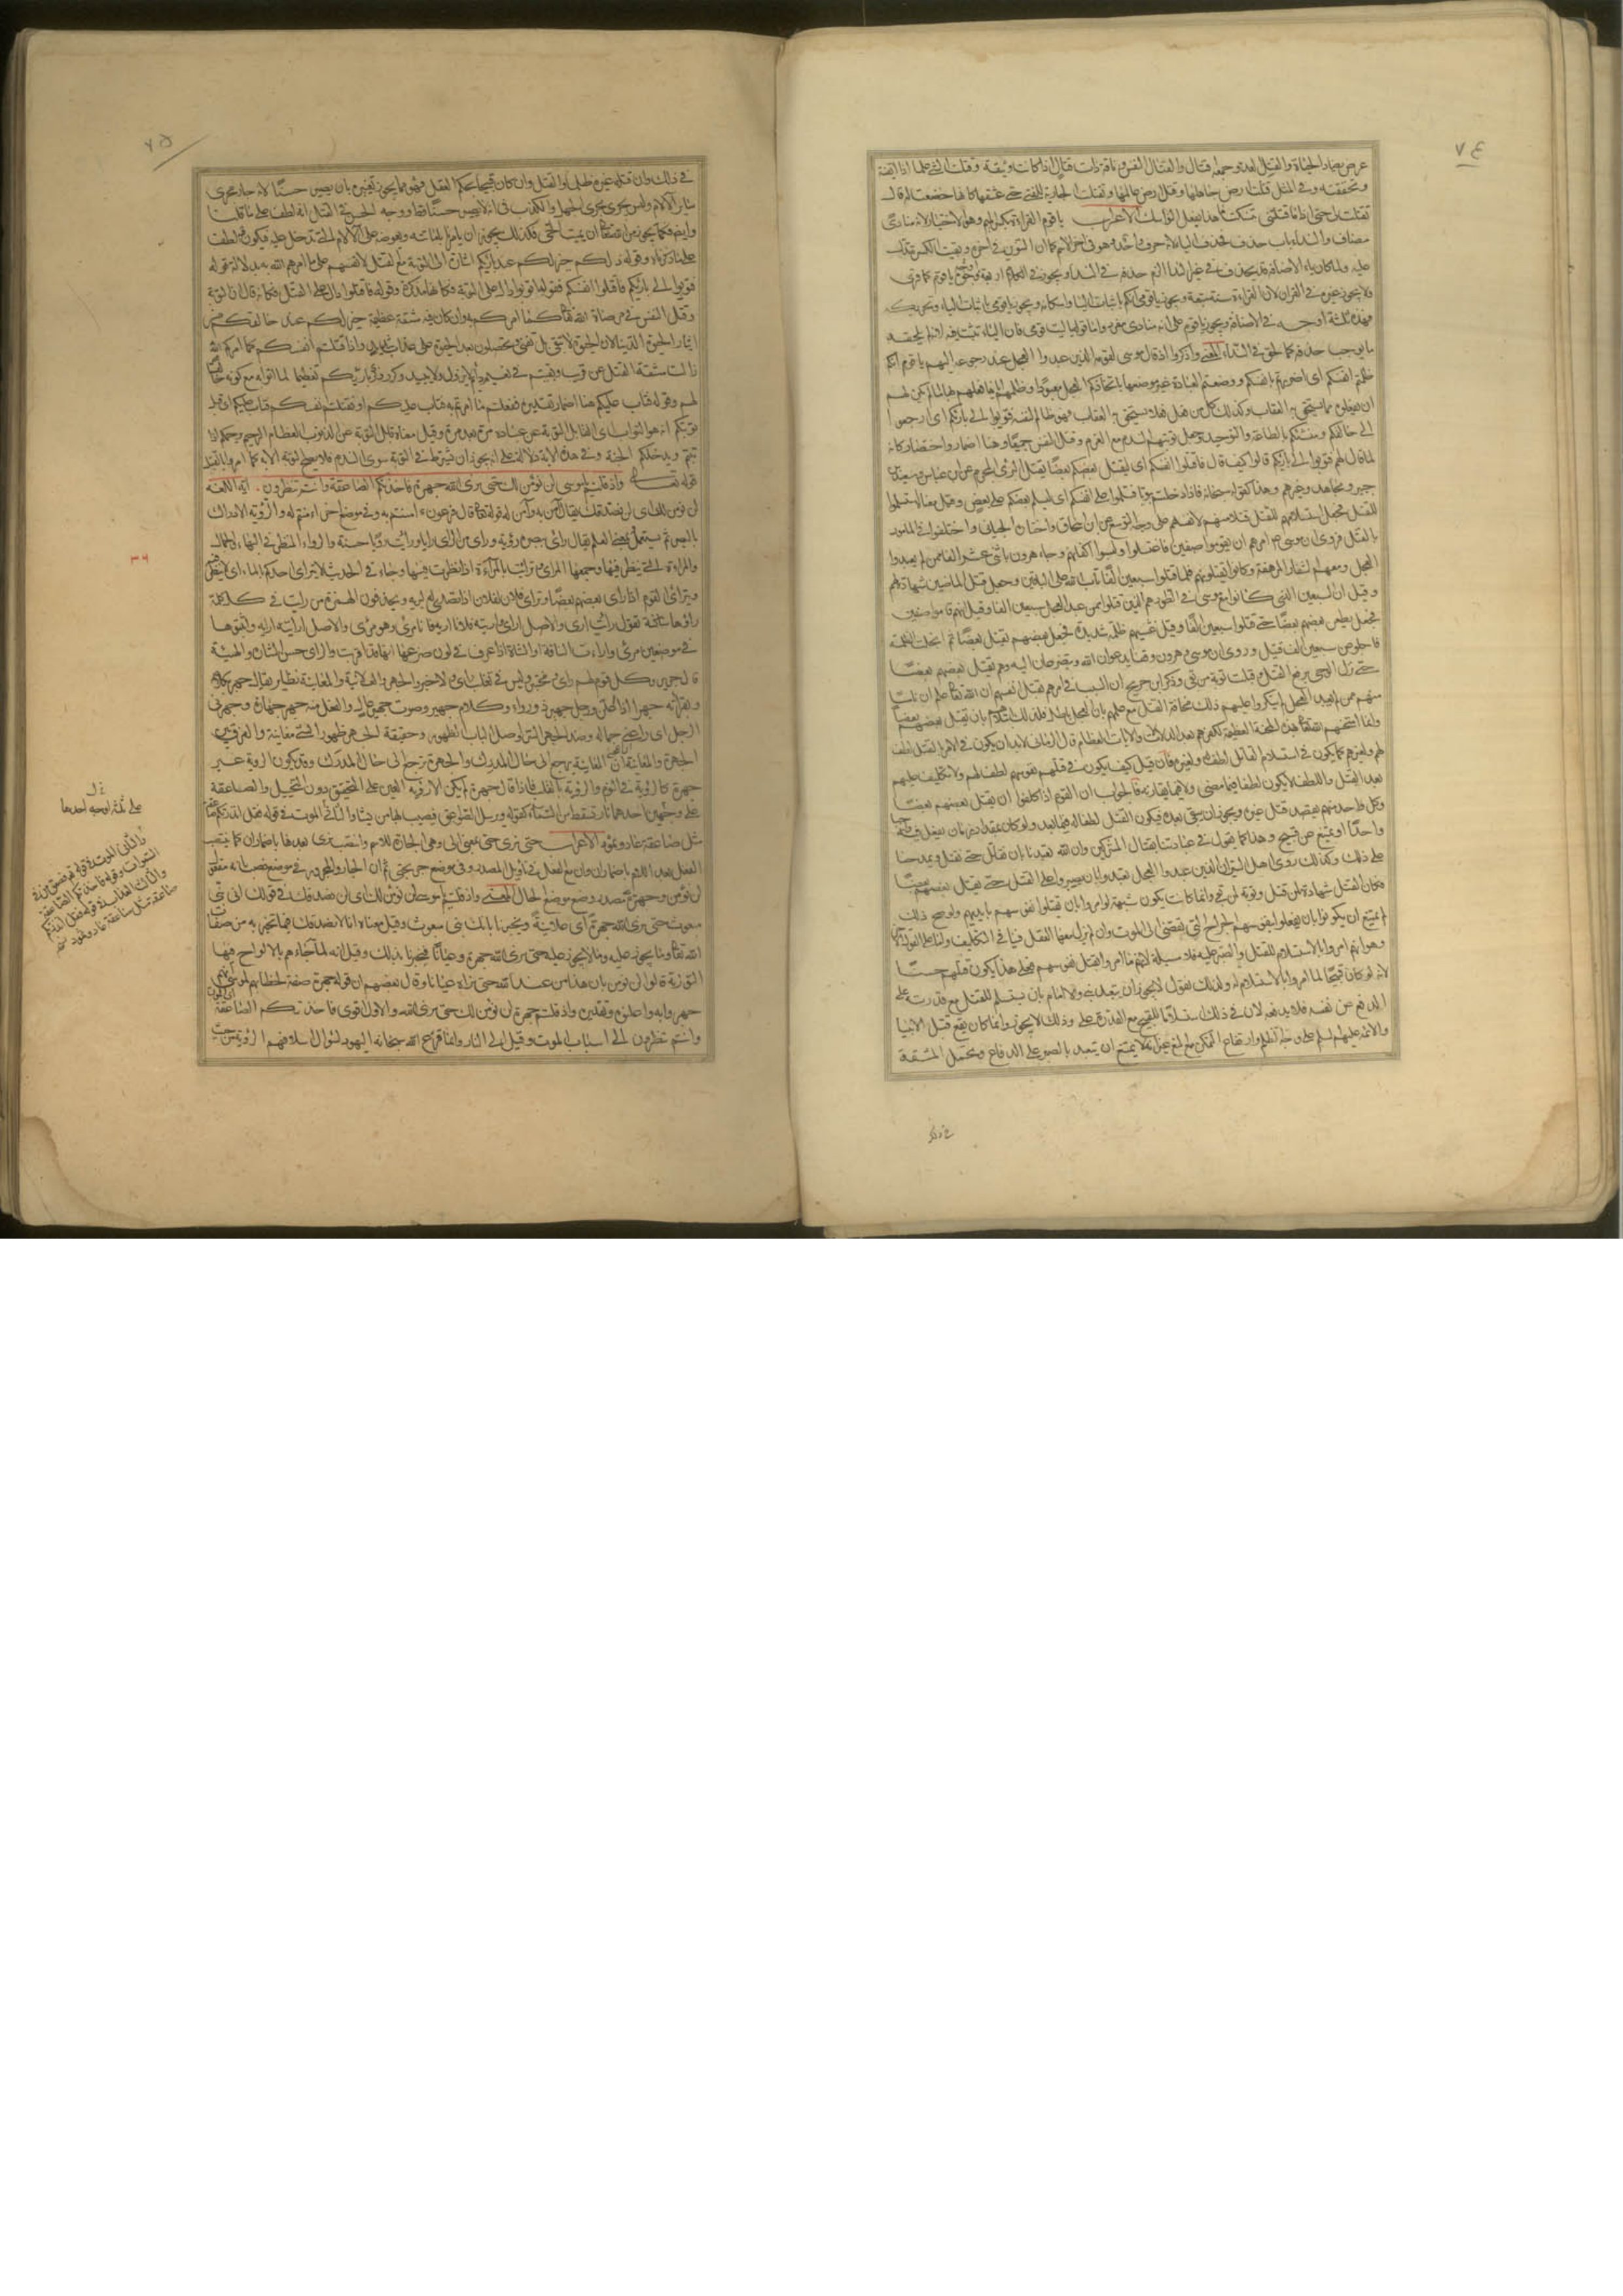 ٧٤
عرض يضاد الحياة والقتل العدو وجمعه اقتال والقتال النفس وناقة ذات قتال اذا كانت وثيقة وقتلت الشيء علما اذا ايقنته
وتحققته وفي المثل قتلت ارض جاهلها وقتل ارض عالمها وتقتلت الجارية للفتى حتى عشقها كانها خضعت له قال
تقتلت لي حتى اذا ما قتلتني تنسكت ما هذا بفعل النواسك الاعراب يا قوم القراءة بكسر الميم وهو الاختيار لانه منادى
مضاف والنداء باب حذف فحذف الياء لانه حرف واحد وهو في اخر الاسم كما ان التنوين في اخره وبقيت الكسرة تدل
عليه ولما كان ياء الاضافة قد يحذف في غير النداء لزم حذفه في النداء ويجوز في الكلام اربعة اوجه يا قوم كما قرئ
ولا يجوز غيره في القران لان القراءة سنة متبعة ويجوز يا قومي انكم باثبات الياء واسكانه ويجوز يا قومي باثبات الياء وتحريكه
فهذه ثلثة اوجه في الاضافة ويجوز يا قوم على انه منادى مفرد واما قوله يا ليت قومي فان الياء ثبتت فيه لانه لم يلحقه
ما يوجب حذفه كما لحق في النداء المعنى واذكروا اذ قال موسى لقومه الذين عبدوا العجل عند رجوعه اليهم يا قوم انكم
ظلمتم انفسكم اي اضررتم بانفسكم ووضعتم العبادة غير موضعها باتخاذكم العجل معبودا وظلمهم اياها فعلهم بها ما لم يكن لهم
ان يفعلوه مما يستحق به العقاب وكذلك كل من فعل فعلا يستحق به العقاب فهو ظالم لنفسه فتوبوا الى بارئكم اي ارجعوا
الى خالقكم ومنشئكم بالطاعة والتوحيد وجعل توبتهم الندم مع العزم وقتل النفس جميعا وهنا اضمار واختصار كانه
لما قال لهم فتوبوا الى بارئكم قالوا كيف قال فاقتلوا انفسكم اي ليقتل بعضكم بعضا بقتل البرئ المجرم عن ابن عباس وسعيد بن
جبير ومجاهد وغيرهم وهذا كقوله سبحانه فاذا دخلتم بيوتا فسلموا على انفسكم اي ليسلم بعضكم على بعض وقيل معناه استسلموا
للقتل فجعل استسلامهم للقتل قتلا منهم لانفسهم على وجه التوسع عن ابن اسحاق واختاره الجبائي واختلفوا في المأمور
بالقتل فروي ان موسى ع امرهم ان يقوموا صفين فاغتسلوا ولبسوا اكفانهم وجاء هرون باثني عشر الفا ممن لم يعبدوا
العجل ومعهم الشفار المرهفة وكانوا يقتلونهم فلما قتلوا سبعين الفا تاب الله على الباقين وجعل قتل الماضين شهادة لهم
وقيل ان السبعين الذين كانوا مع موسى في الطور هم الذين قتلوا ممن عبد العجل سبعين الفا وقيل انهم قاموا صفين
فجعل يطعن بعضهم بعضا حتى قتلوا سبعين الفا وقيل غشيهم ظلمة شديدة فجعل بعضهم يقتل بعضا ثم انجلت الظلمة
فاجلوا عن سبعين الف قتيل وروي ان موسى وهرون وقفا يدعوان الله ويتضرعان اليه وهم يقتل بعضهم بعضا
حتى نزل الوحي برفع القتل وقبلت توبة من بقي وذكر ابن جريج ان السبب في امرهم بقتل انفسهم ان الله تعالى علم ان ناسا
منهم ممن لم يعبد العجل لم ينكروا عليهم ذلك مخافة القتل مع علمهم بان العجل باطل فلذلك ابتلاهم بان يقتل بعضهم بعضا
وانما امتحنهم الله تعالى بهذه المحنة العظيمة لكفرهم بعد الدلالات والايات العظام قال الرماني لا بد ان يكون في الامر بالقتل لطف
لهم ولغيرهم كما يكون في استسلام القاتل لطف له ولغيره فان قيل كيف يكون في قتلهم نفوسهم لطف لهم ولا تكليف عليهم
بعد القتل واللطف لا يكون لطفا فيما مضى ولا فيما يقارنه فالجواب ان القوم اذا كلفوا ان يقتل بعضهم بعضا
وكل واحد منهم يقصد قتل غيره ويجوز ان يبقى بعده فيكون القتل لطفا له فيما بعد ولو كان بمقدار زمان يفعل فيه واجبا
واحدا او يمتنع عن قبيح وهذا كما يقول في عباداتنا بقتال المشركين وان الله تعبدنا بان نقاتل حتى نقتل ويمدحنا
على ذلك وكذلك روى اهل السير ان الذين عبدوا العجل تعبدوا بان يصبروا على القتل حتى يقتل بعضهم بعضا
فكان القتل شهادة لمن قتل وتوبة لمن بقي وانما كانت يكون شبهة لو امروا بان يقتلوا نفوسهم بايديهم ولو صح ذلك
لم يمتنع ان يكونوا بان يفعلوا بنفوسهم الجراح التي تفضي الى الموت وان لم يزل معها العقل فينافي التكليف واما على القول الآخر
وهو انهم امروا بالاستسلام للقتل والصبر عليه فلا مسئلة لانهم ما امروا بقتل نفوسهم فعلى هذا يكون قتلهم حسنا
لانه لو كان قبيحا لما امروا بالاستسلام له ولذلك نقول لا يجوز ان يتعبد نبي ولا امام بان يستسلم للقتل مع قدرته على
الدفع عن نفسه فلا يدفعه لان في ذلك استسلاما للقبيح مع القدرة على وذلك لا يجوز وانما كان يقع قتل الانبيا
والائمة عليهم السلم على وجه الظلم وارتفاع التمكن من المنع غير انه لا يمتنع ان يتعبد بالصبر على الدفاع وتحمل المشقة
في ذلك
٧٥
في ذلك وان قتله غيره ظلما والقتل وان كان قبيحا بحكم العقل فهو مما يجوز تغيره بان يصير حسنا لانه جار مجرى
سائر الالام وليس يجري مجرى الجهل والكذب في انه لا يصير حسنا قط ووجه الحسن في القتل انه لطف على ما قلنا
وايضا فكما يجوز من الله تعالى ان يميت الحي فكذلك يجوز ان يامرنا باماتته ويعوضه على الالام التي تدخل عليه ويكون فيه لطف
على ما ذكرناه وقوله ذلكم خير لكم عند بارئكم اشارة الى التوبة مع القتل لانفسهم على ما امرهم الله به بدلالة قوله
فتوبوا الى بارئكم فاقتلوا انفسكم فقوله توبوا دال على التوبة فكانها مذكورة وقوله فاقتلوا دال على القتل فكانه قال ان التوبة
وقتل النفس في مرضاة الله تعالى كما امركم به وان كان فيه مشقة عظيمة خير لكم عند خالقكم من
ايثار الحيوة الدنيا لان الحيوة لا تبقى بل تفنى وتحصلون بعد الحيوة على عذاب شديد واذا قتلتم انفسكم كما امركم الله
زالت مشقة القتل عن قريب وبقيتم في نعيم دائم لا يزول ولا يبيد وكرر ذكر بارئكم تعظيما لما اتوا به مع كونه خالقا
لهم وقوله فتاب عليكم هنا اضمار تقديره ففعلتم ما امرتم به فتاب عليكم او فقتلتم انفسكم فتاب عليكم اي قبل
توبتكم انه هو التواب اي القابل التوبة عن عباده مرة بعد مرة وقيل معناه قابل التوبة عن الذنوب العظام الرحيم يرحمكم اذا
تبتم ويدخلكم الجنة وفي هذه الاية دلالة على انه يجوز ان يشترط في التوبة سوى الندم ما لا يصح التوبة الا به كما امروا بالقتل
قوله تعالى واذ قلتم يا موسى لن نؤمن لك حتى نرى الله جهرة فاخذتكم الصاعقة وانتم تنظرون . اية اللغة
لن نؤمن لك اي لن نصدقك يقال آمن به وآمن له قوله تعالى قال فرعون ءامنتم به وفي موضع اخر امنتم له والرؤية الادراك
بالبصر ثم يستعمل بمعنى العلم يقال راى ببصره رؤية وراى من الراي رايا ورايت رؤيا حسنة والرواء المنظر في البهاء والجمال
والمراة التي ينظر فيها وجمعها المرائي وترايت بالمراة اذا نظرت فيها وجاء في الحديث لا يتراى احدكم بالماء اي لا ينظر فيه
ويتراءى القوم اذا راى بعضهم بعضا وتراى فلان لفلان اذا تصدى له ليريه ويحذفون الهمزة من رايت في كل كلمة
راؤها ساكنة تقول رايت ارى والاصل ارأى واريته فلانا اريه فانا مري وهو مرى والاصل ارايته ارايه واثبتوها
في موضعين مرئي واراءت الناقة والشاة اذا عرف في لون ضرعها انها قد اقربت والراي حسن الشان والهيئة
قال جرير وكل قوم لهم راي ومختبر وليس في تغلب راي ولا خبر والجهر والعلانية والمعاينة نظائر يقال جهر بكلامه
وبقراءته جهرا اذا اعلن ورجل جهير ذو رواء وكلام جهير وصوت جهير اي عال والفعل منه جهر جهارة وجهرني
الرجل اي راعني جماله وضد الجهر السر واصل الباب الظهور وحقيقة الجهر ظهور الشيء معاينة والفرق بين
الجهرة والمعاينة ان المعاينة يرجع الى حال المدرك والجهرة يرجع الى حال المدرك وقد يكون الرؤية غير
جهرة كالرؤية في النوم والرؤية بالقلب فاذا قال جهرة لم يكن الا رؤية العين على التحقيق دون التخييل والصاعقة
على وجهين احدها نار تسقط من السماء كقوله ويرسل الصواعق فيصيب بها من يشاء والثاني الموت في قوله فقل انذرتكم صاعقة
مثل صاعقة عاد وثمود الاعراب حتى نرى حتى بمعنى الى وهي الجارة للاسم وانتصب نرى بعدها باضمار ان كما ينتصب
الفعل بعد اللام باضمار ان وان مع الفعل في تاويل المصدر وفي موضع جر بحتى ثم ان الجار والمجرور في موضع نصب بانه مفعول
لن نؤمن وجهرة مصدر وضع موضع الحال المعنى واذ قلتم يا موسى لن نؤمن لك اي لن نصدقك في قولك انك نبي
مبعوث حتى نرى الله جهرة اي علانية ويخبرنا بانك نبي مبعوث وقيل معناه انا لا نصدقك فيما تخبر به من صفات
الله تعالى وما يجوز عليه وما لا يجوز عليه حتى نرى الله جهرة وعيانا فيخبرنا بذلك وقيل انه لما جاءهم بالالواح فيها
التورية قالوا لن نؤمن بان هذا من عند الله حتى نراه عيانا وقال بعضهم ان قوله جهرة صفة لخطابهم لموسى انهم
جهروا به واعلنوه وتقديره واذ قلتم جهرة لن نؤمن لك حتى نرى الله والاول اقوى فاخذتكم الصاعقة اي الموت
وانتم تنظرون الى اسباب الموت وقيل الى النار وانما قرع الله سبحانه اليهود بسؤال اسلافهم الرؤية من حيث
٣٦
على ثلثة اوجه احدها
والثاني الموت في قوله فصعق من في
السموات وقوله فاخذتكم الصاعقة
والثالث العذاب في قوله فقل انذرتكم
صاعقة مثل صاعقة عاد وثمود